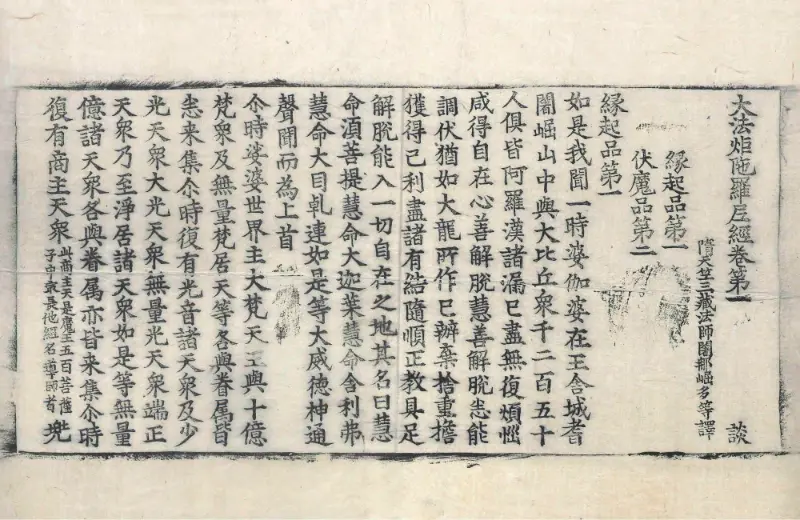 大法炬陁羅尼經卷第一 談
隋天竺三藏法師闍那崛多等譯
縁起品第一
伏魔品第二
縁起品第一
如是我聞一時婆伽婆在王舍城耆
闍崛山中與大比丘衆千二百五十
人俱皆阿羅漢諸漏已盡無復煩惱
咸得自在心善解脫慧善解脫悉能
調伏猶如大龍所作已辦棄捨重擔
獲得己利盡諸有結隨順正教具足
解脫能入一切自在之地其名曰慧
命湏菩提慧命大迦葉慧命舍利弗
慧命大目乹連如是等大威德神通
聲聞而為上首
尒時娑婆世界主大梵天王與十億
梵衆及無量梵居天等各與眷属皆
悉来集尒時復有光音諸天衆及少
光天衆大光天衆無量光天衆端正
天衆乃至淨居諸天衆如是等無量
億諸天衆各與眷属亦皆来集尒時
復有商主天衆 此商主天是魔王五百菩薩
子中最長他經名導師者 兠